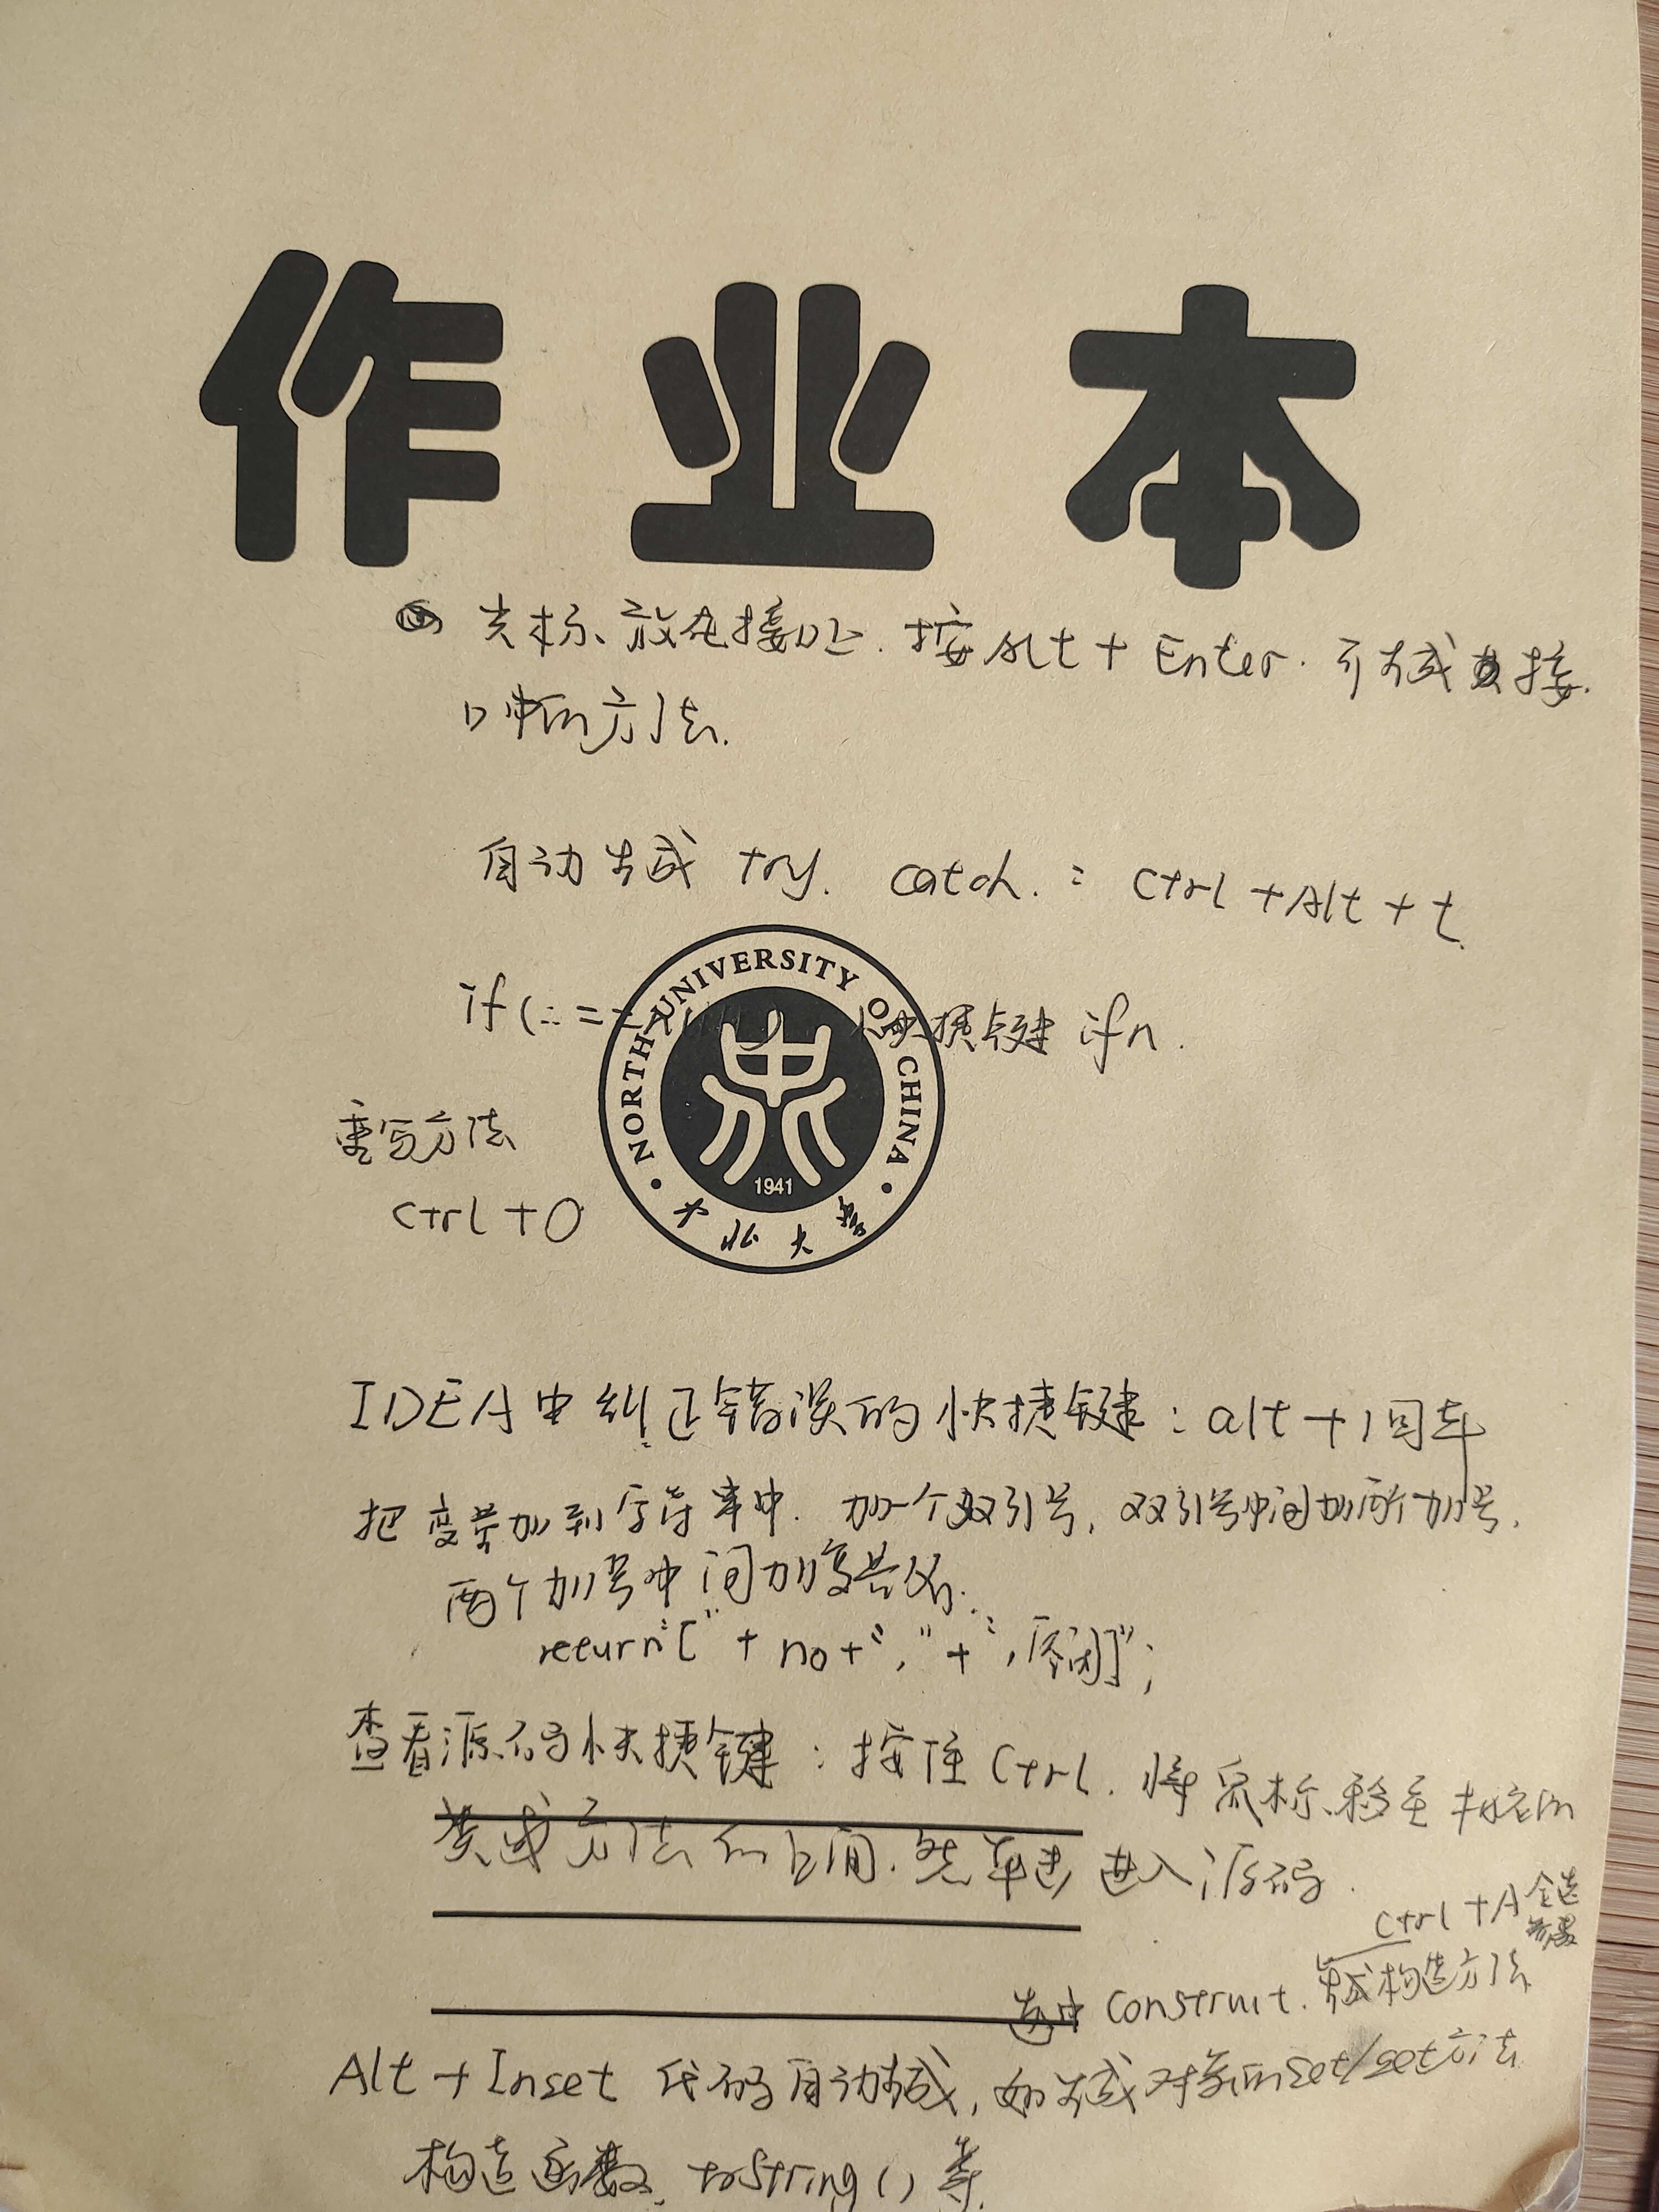 作业本
光标放在接口上.按Alt+Enter.可生成接
口中的方法.
自动生成 try. catch.: Ctrl+Alt+t.
if( == 快捷键 ifn.
NORTH UNIVERSITY OF CHINA
1941
中北大学
重写方法
Ctrl+O
IDEA中纠正错误的快捷键:alt+回车
把变量加到字符串中.加一个双引号,双引号中间加两个加号.
两个加号中间加变量名.
return"["+no+","+",]";
查看源码快捷键:按住Ctrl.将鼠标移至指定的
类或方法的上面.然单击 进入源码.
Ctrl+A全选
选中construct. 生成构造方法
Alt+Inset 代码自动生成,如生成对象的set/get方法
构造函数, toString()等.